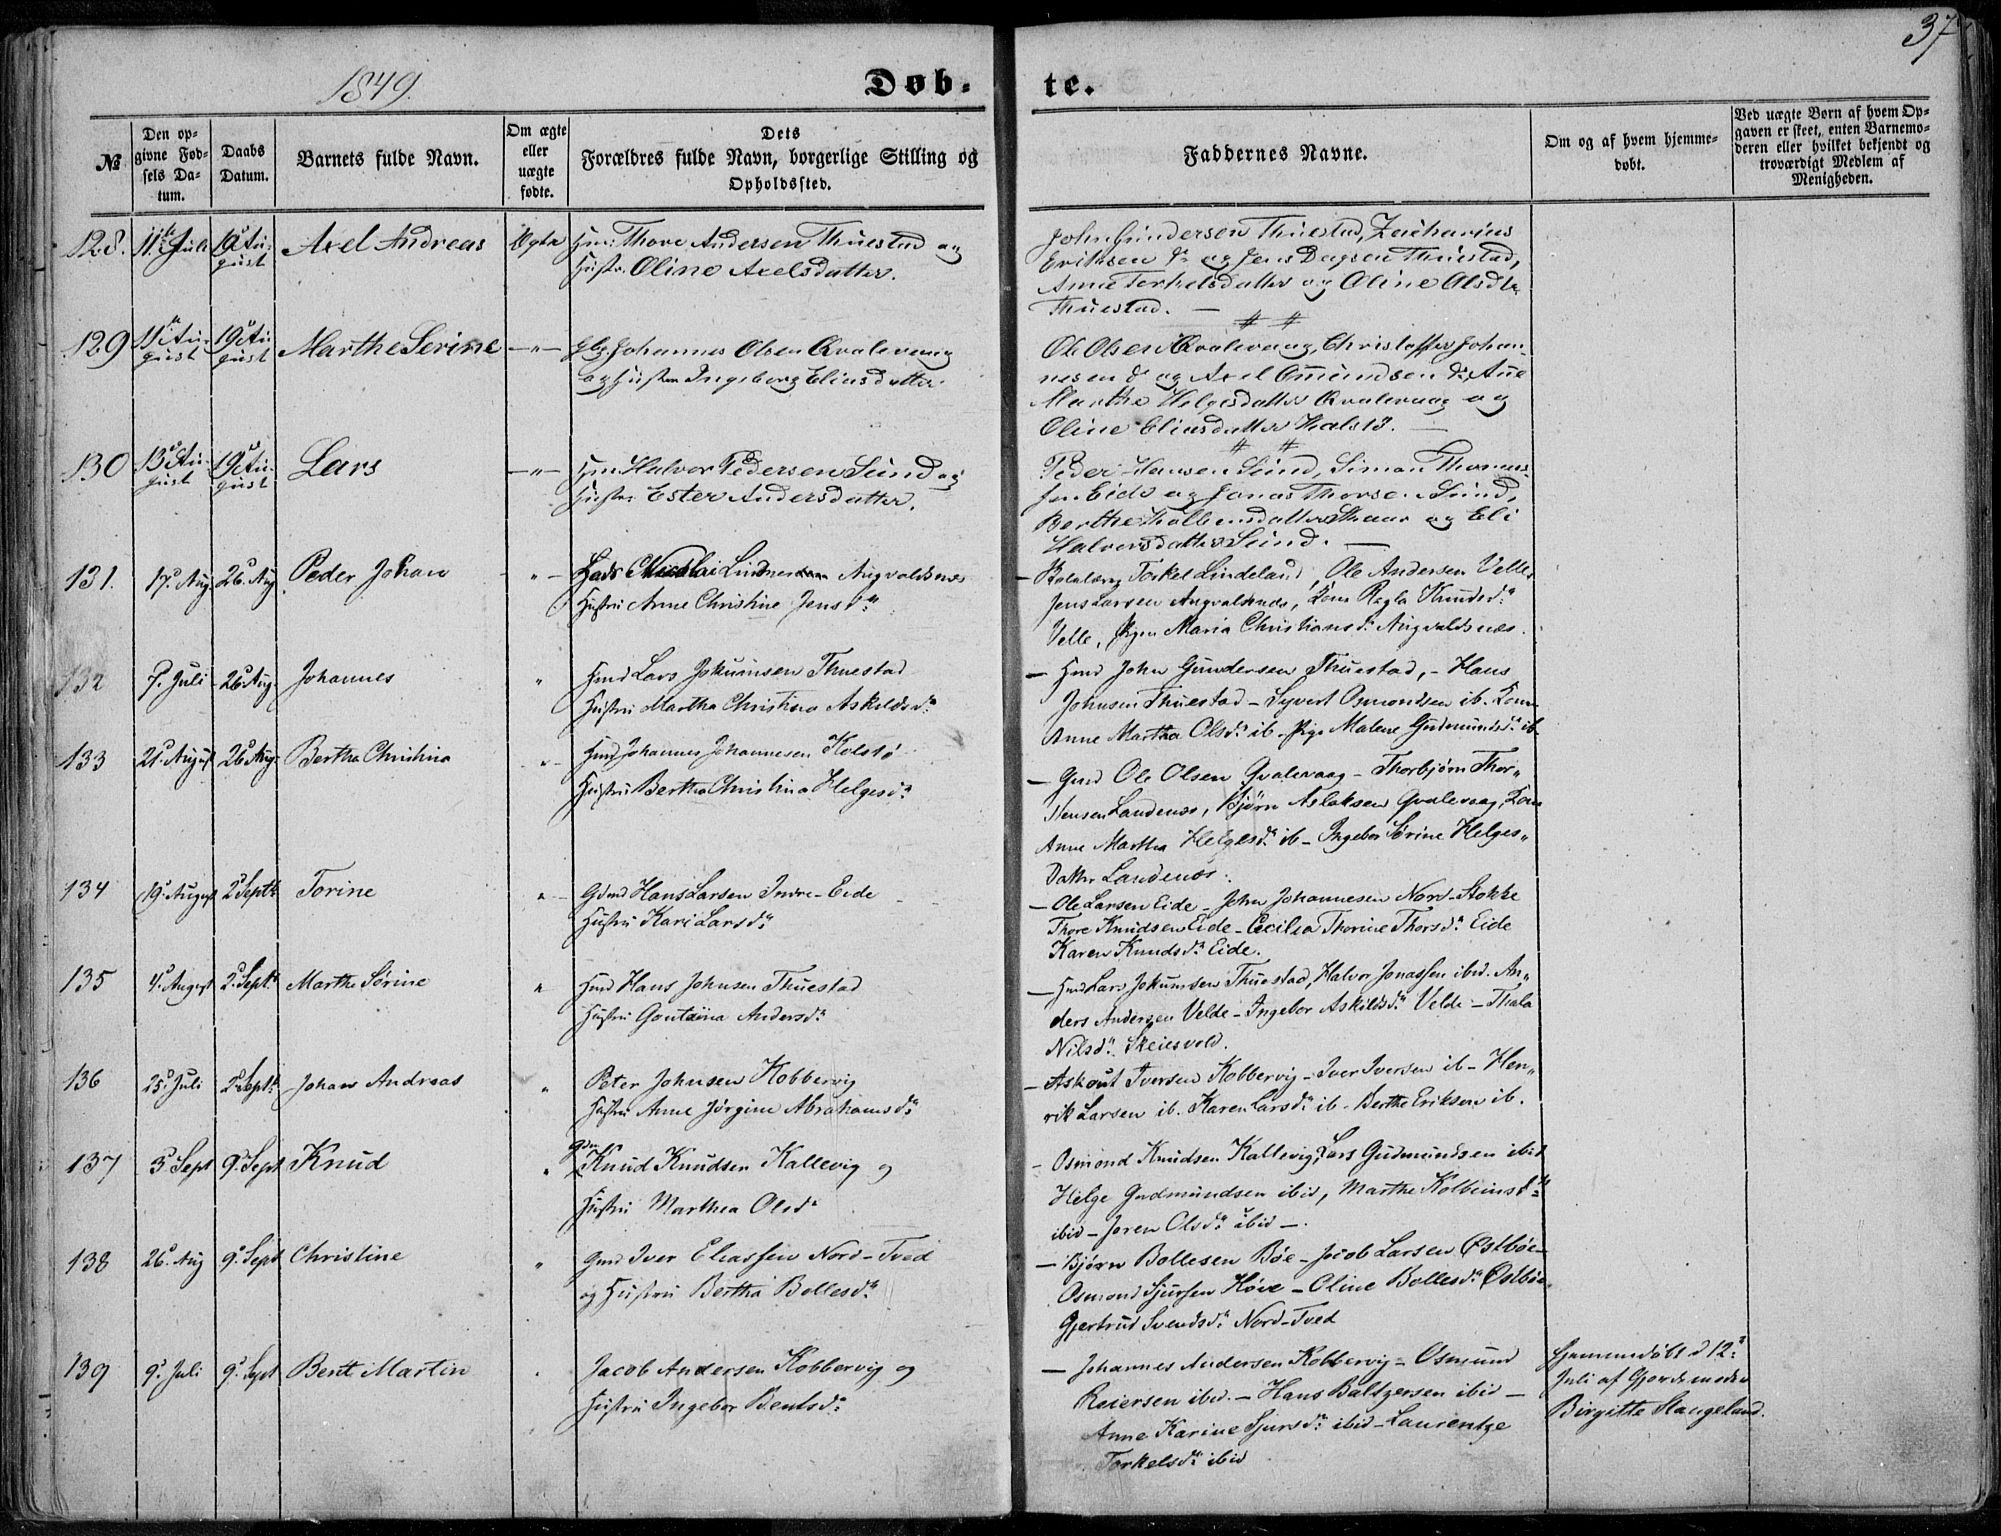 37
1849.
Døb-
te.
№
Den op-
givne Fød-
sels Da-
tum.
Daabs
Datum.
Barnets fulde Navn.
Om ægte
eller
uægte
fødte.
Dets
Forældres fulde Navn, borgerlige Stilling og
Opholdssted.
Faddernes Navne.
Om og af hvem hjemme-
døbt.
Ved uægte Børn af hvem Op-
gaven er skeet, enten Barnemo-
deren eller hvilket bekjendt og
troværdigt Medlem af
Menigheden.
128. 11te Juli 19de Au- Axel Andreas Ægte Thore Andersen Thuestad og
gust Hustr. Oline Axelsdatter.
John Gundersen Thuestad, Zacharias
Eriksen do og Jens Dagsen Thuestad,
Anne Torkelsdatter og Oline Olsdtr
Thuestad. —
129 11te Au- 19de Au- Marthe Serine —"— Johannes Olsen Qvalevaag
gust gust og Hustru Ingeborg Eliasdatter.
Ole Olsen Qvalevaag, Christoffer Johan-
nesen do og Axel Omundsen do, Ane
Marthe Helgesdatter Qvalevaag og
Oline Eliasdatter Halstø. —
130 13de Au- 19de Au- Lars —"— Halvor Pedersen Sund og
gust gust Hustr. Ester Andersdatter.
Peder Hansen Sund, Simon Thomas-
sen Eide og Jonas Thorsen Sund,
Berthe Kolbensdatter Skaar og Eli
Halvorsdatter Sund. —
131. 17d Aug 26d Aug Peder Johan " Lads Nicolai Lindner Augvaldsnes
Hustru Anne Christine Jensdr
— Torkel Lindeland, Ole Andersen Velle
Jens Larsen Augvalsnes, Kone Ragla Knudsdr
Velle, Pigen Maria Christiansdr Augvaldsnæs.
132 7. Juli 26d Aug. Johannes " Hmd Lars Jokumsen Thuestad
Hustru Martha Christina Askildsdr
— Hmd John Gundersen Thuestad, - Hans
Johnsen Thuestad - Syvert Osmondsen ib. Kone
Anne Martha Olsdr ib. Pige Malene Gudmundsdr ib
133 21d August 26d Aug. Bertha Christina " Hmd Johannes Johannesen Holstø
Hustru Bertha Christina Helgesdr
— Gmd Ole Olsen Qvalevaag - Thorbjørn Thor-
stensen Landenes, Bjørn Aslaksen Qvalevaag, Kone
Anne Martha Helgesdr ib - Ingebor Sørine Helges-
Datter Landenes.
134 19d August 2d Septbr Torine " Gdmd Hans Larsen Indre-Eide
Hustru Kari Larsdr
— Ole Larsen Eide - John Johannesen Nord-Stokke
Thore Knudsen Eide - Cecilia Thorine Thorsdr Eide
Karen Knudsdr Eide.
135 4d August 2d Septbr Marthe Sørine " Hmd Hans Johnsen Thuestad
Hustru Andersdr
— Hmd Lars Jokumsen Thuestad, Halvor Jonassen ibid. An-
ders Andersen Velde - Ingebor Askildsdr Velde - Thala
Nilsdr Skeiesvold.
136 25d Juli 2d Septbr Johan Andreas " Peter Johnsen Kobbervig
Hustru Anne Jørgine Abrahamsdr
— Askout Iversen Kobbervig - Iver Iversen ib - Hen-
rik Larsen ib. Karen Larsdr ib - Berthe Eriksen ib.
137 3d Sept 9d Sept Knud " Knud Knudsen Kallevig og
Hustru Marthea Olsdr
- Osmond Knudsen Kallevig, Lars Gudmundsen ibid
Helge Gudmundsen ibid, Marthe Kolbeinsdr
ibid - Joren Olsdr ibid -.
138 26d Aug 9d Sept Christine " Gmd Iver Eliassen Nord-Tved
og Hustru Bertha Bollesdr
— Bjørn Bollesen Bøe - Jacob Larsen Østbøe
Osmond Sjursen Høie - Oline Bollesdr Østbøe
Gjertrud Svendsdr Nord-Tved
139 9d Juli 9d Sept Bent Martin Jacob Andersen Kobbervig og
Hustru Ingebor Bentsdr
— Johannes Andersen Kobbervig - Osmund
Reiersen ibid. - Hans Baltzersen ibid -
Anne Karine Sjursdr ibid - Laurentze
Torkelsdr ibid
Hjemmedøbt d 12te
Juli af Gjordemoder
Birgitte Stangeland.